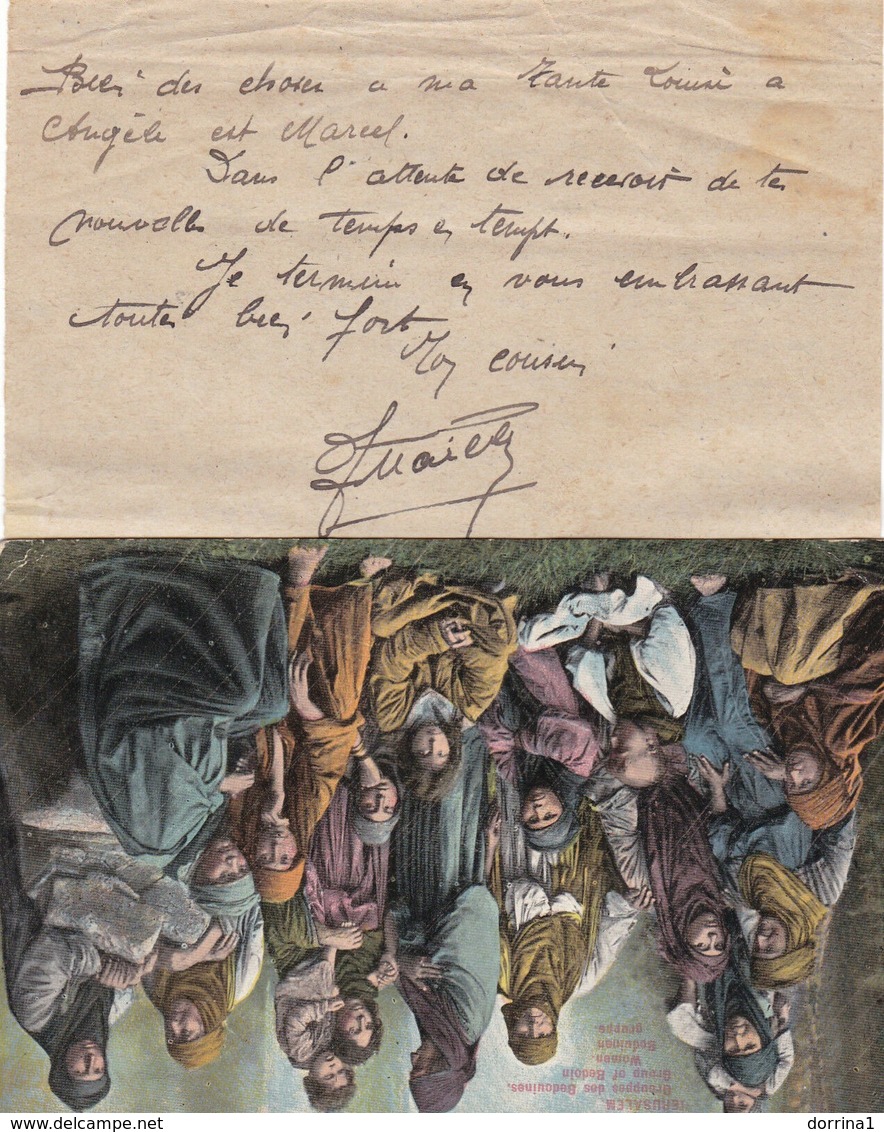 Bien des choses a ma Tante Louise a
Angèle est Marcel.
Dans l'attente de recevoir de tes
nouvelles de temps en tempt.
Je termine en vous embrassant
toutes bien fort
Ton cousin
JERUSALEM
Grouppes des Bedouines.
Group of Bedoin
Women.
Beduinen
gruppe.
dorrina1